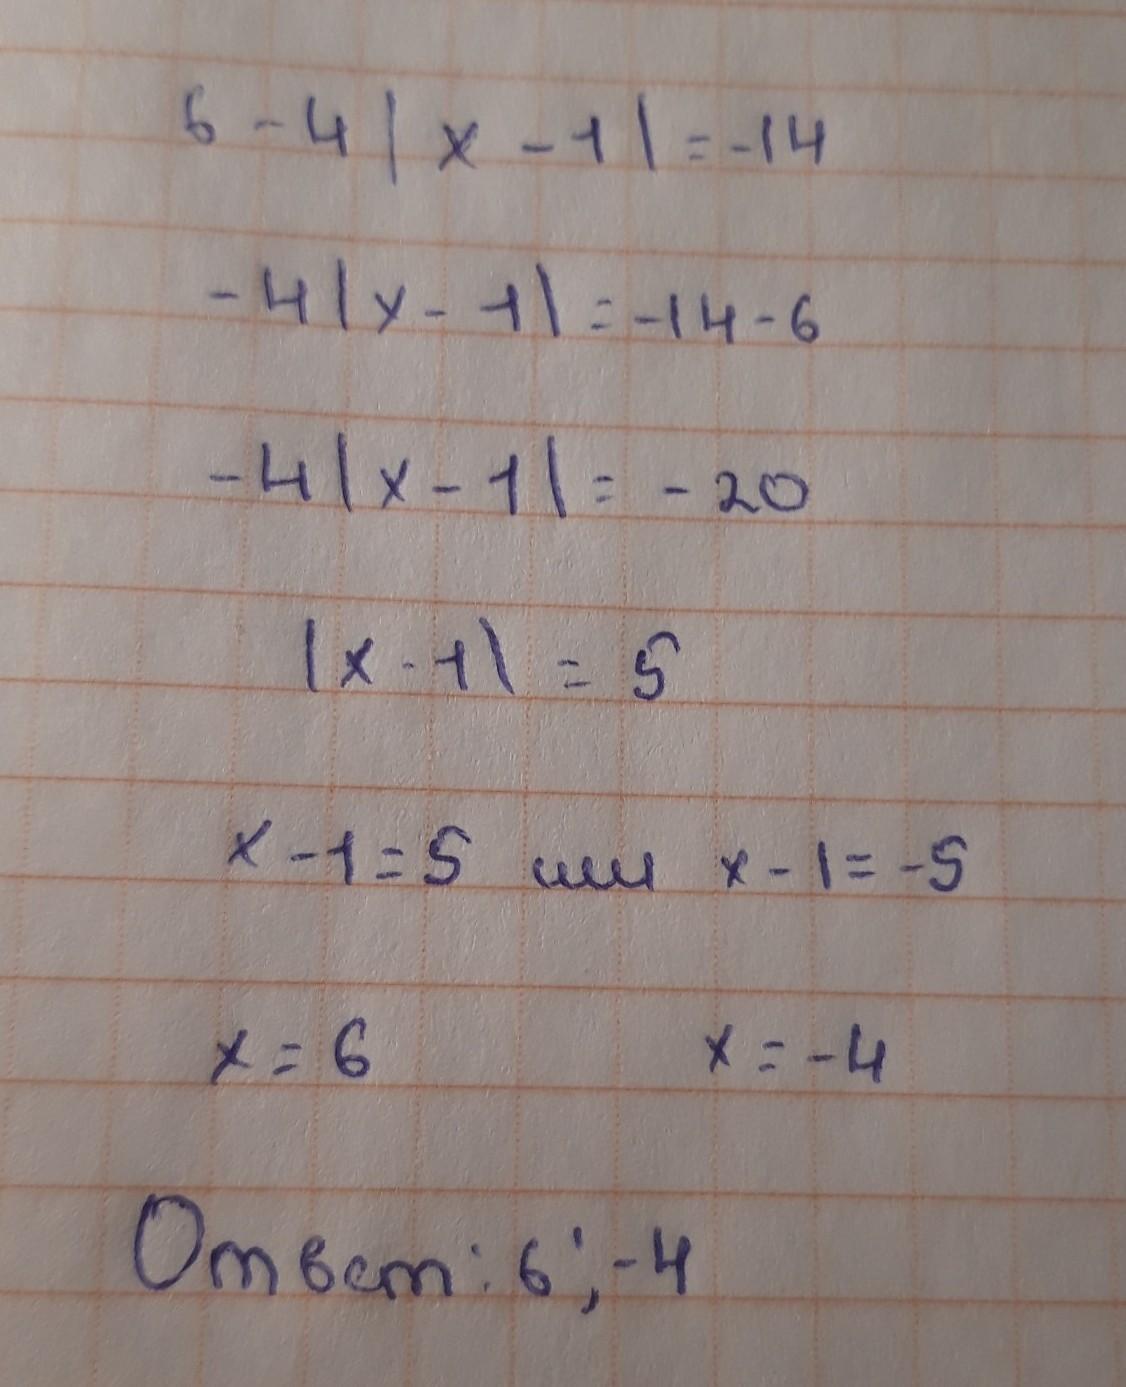 6 - 4 | x - 1 | = -14
-4 | x - 1 | = -14 - 6
-4 | x - 1 | = -20
| x - 1 | = 5
x - 1 = 5 или x - 1 = -5
x = 6 x = -4
Ответ: 6; -4